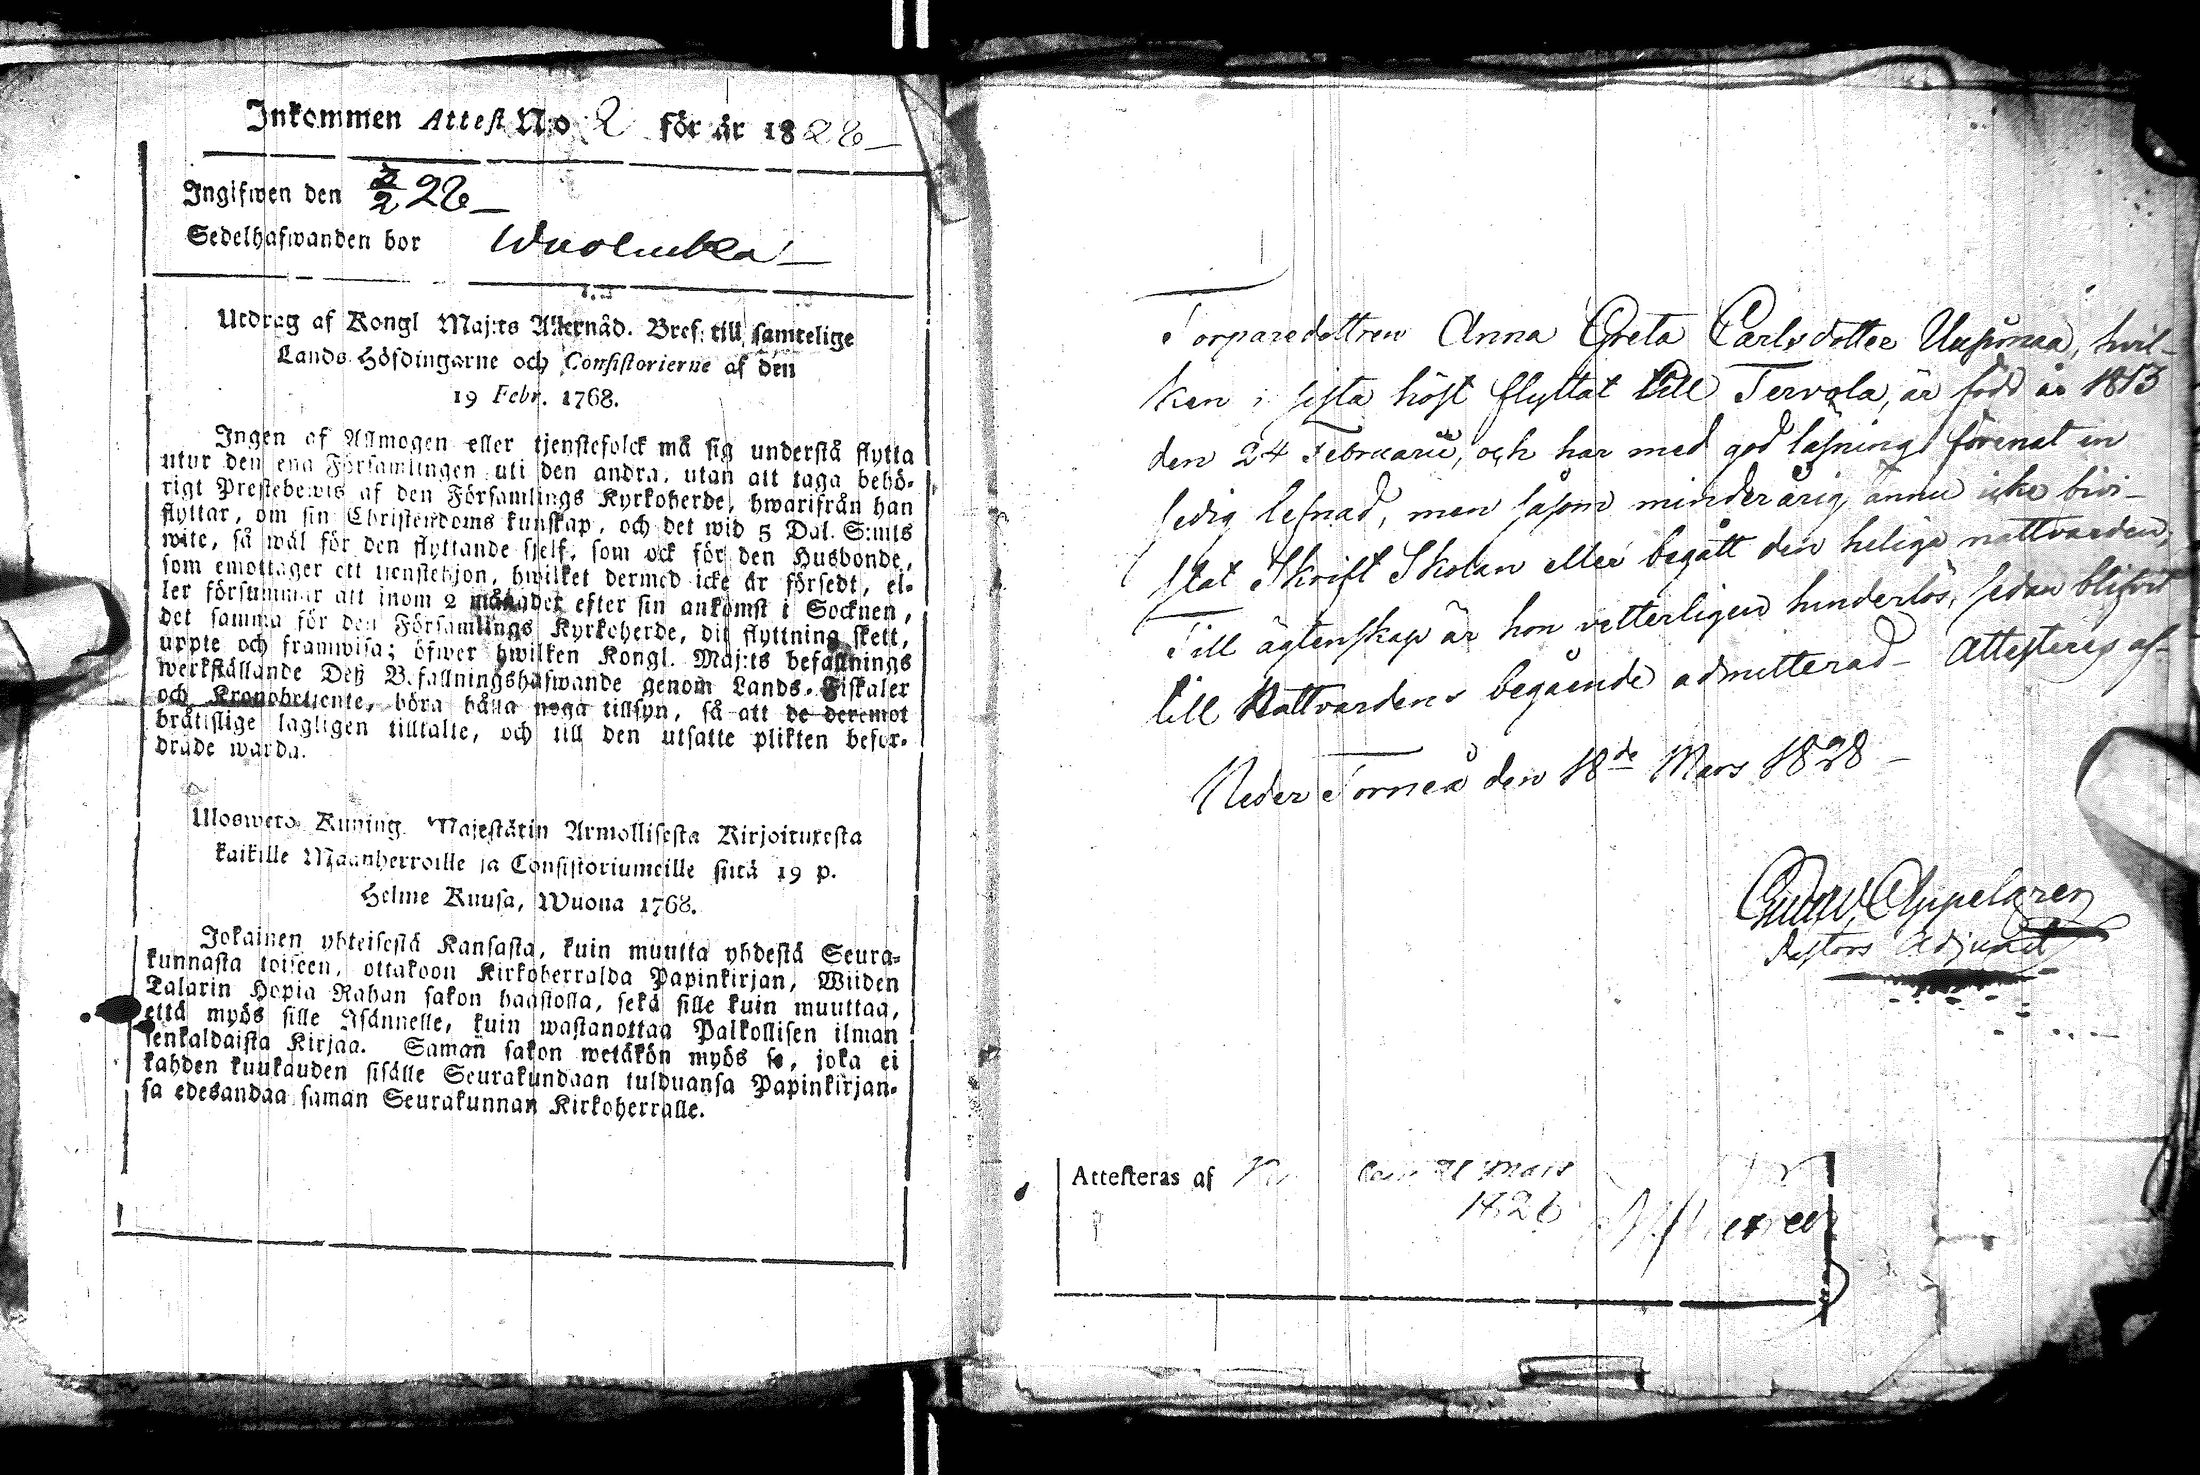 Inkommen Attest N:o 2 för år 1826
Ingifwen den 26
Sedelhafwanden bor
Utdrag af Kongl Maj:ts Allernåd. Bref: till samtelige
Lands-Höfdingarne och Consistorierne af den
19 Febr. 1768.
Ingen af Allmogen eller tjenstefolck må sig understå flytta
utur den ena Församlingen uti den andra, utan att taga behö-
rigt Prestebewis af den Församlings Kyrkoherde, hwarifrån han
flyttar, om sin Christendoms kunskap, och det wid 5 Dal. S:mts
wite, så wäl för den flyttande sjelf, som ock för den Husbonde,
som emottager ett tjenstehjon, hwilket dermed icke är försedt, el-
ler försummar att inom 2 månader efter sin ankomst i Socknen,
det samma för den Församlings Kyrkoherde, dit flyttning skett,
uppte och framwisa; öfwer hwilken Kongl. Maj:ts befallnings
werkställande Deß Befallningshafwande genom Lands-Fiskaler
och Kronobetjente, böra hålla noga tillsyn, så att de deremot
brätslige lagligen tilltalte, och till den utsatte plikten befor-
drade warda.
Ulosweto Kuning. Majestätin Armollisesta Kirjoituxesta
kaikille Maanherroille ja Consistoriumeille siitä 19 p.
Helme Kuusa, Wuona 1768.
Jokainen yhteisestä Kansasta, kuin muutta yhdestä Seura-
kunnasta toiseen, ottakoon Kirkoherralda Papinkirjan, Wiiden
Talarin Hopia Rahan sakon haastolla, sekä sille kuin muuttaa,
että myös sille Isännelle, kuin wastanottaa Palkollisen ilman
senkaldaista Kirjaa. Saman sakon wetäkön myös se, joka ei
kahden kuukauden sisälle Seurakundaan tulduansa Papinkirjan-
sa edesandaa saman Seurakunnan Kirkoherralle.
Torparedottren Anna Greta Carlsdotter hvil-
ken i sista höst flyttat till Tervola, är född år 1813
den 24 Februarii, och har med god läsning förenat en
sedig lefnad, men såsom minderårig ännu icke bivi-
stat Skrift Skolan eller begått den heliga nattvarden.
Till ägtenskap är hon vetterligen hinderlös, sedan blifvit
till Nattvardens begående admitterad – Attesteras af
Neder Torneå den 18de Mars 1828 –
Gustav Appelgren
Pastors Adjunct
Attesteras af Mars
1826